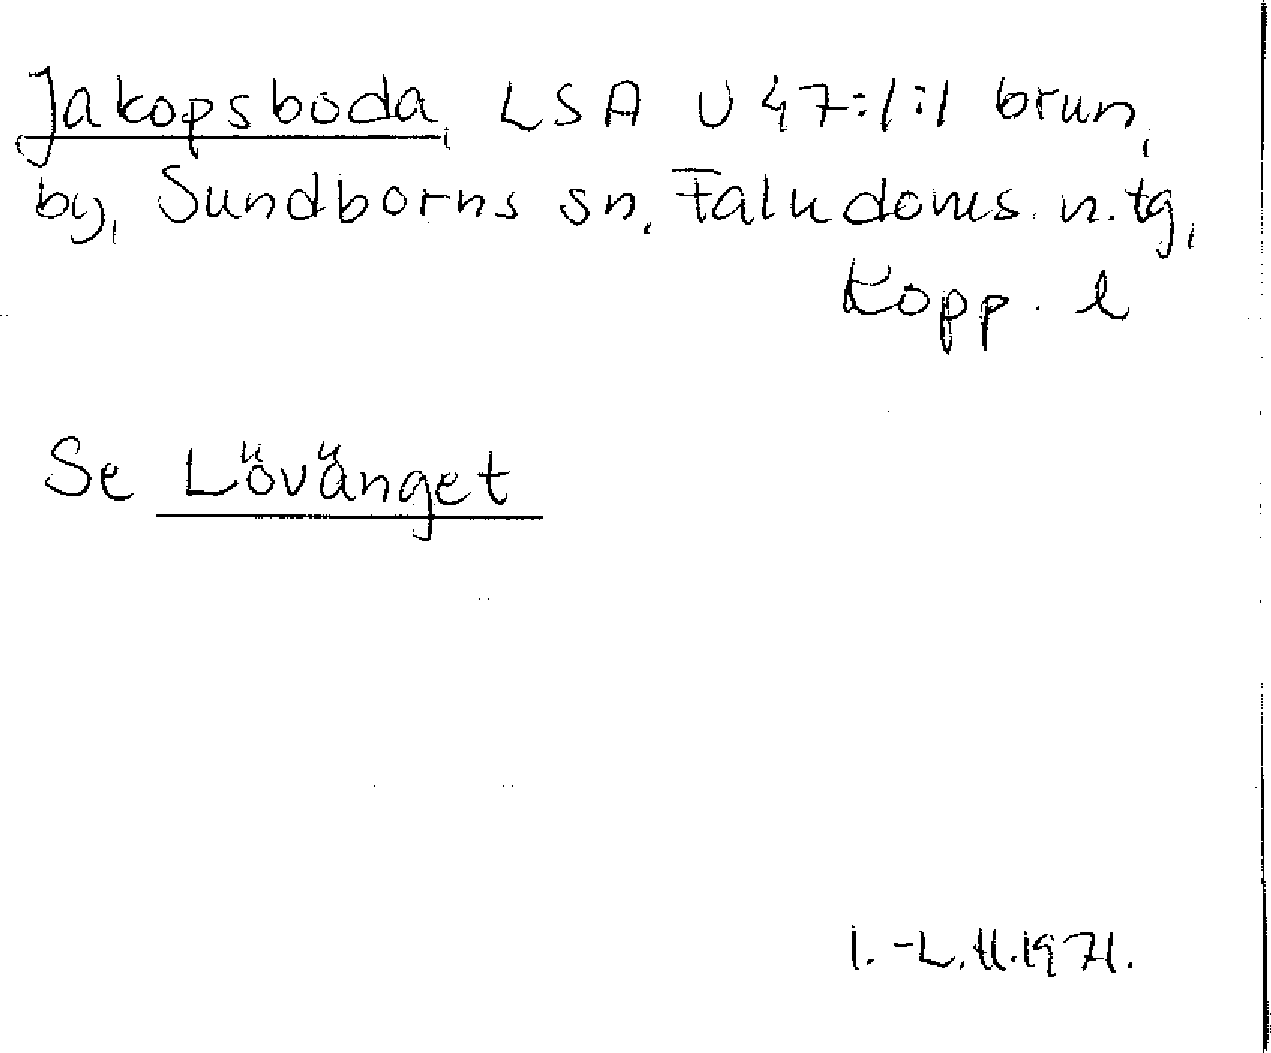 Jakopsboda, LSA U 47:1:1 brun,
by, Sundborns sn, Falu doms. n. tg,
Kopp. l
Se Lövänget
I.-L. H. 1971.